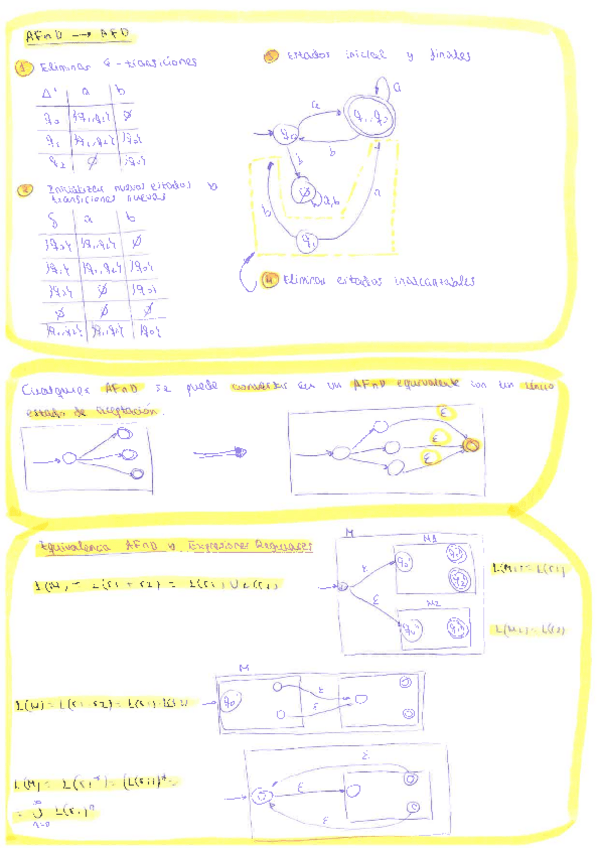 AFnD → AFD
1 Eliminar ε-transiciones
Δ' | a | b
q0 | {q1,q2} | ∅
q1 | {q1,q2} | {q0}
q2 | ∅ | {q0}
2 Inicializar nuevos estados y
transiciones nuevas
δ | a | b
{q0} | {q1,q2} | ∅
{q1} | {q1,q2} | {q0}
{q2} | ∅ | {q0}
∅ | ∅ | ∅
{q1,q2} | {q1,q2} | {q0}
3 Estados inicial y finales
a
q1,q2
a
q0
b
b
∅
a,b
b
a
q1
4 Eliminar estados inalcanzables
Cualquier AFnD se puede convertir en un AFnD equivalente con un único
estado de aceptación.
ε
ε
ε
Equivalencia AFnD y Expresiones Regulares
L(M) = L(r1 + r2) = L(r1) ∪ L(r2)
M
M1
ε
q0'
L(M1) = L(r1)
ε
M2
L(M2) = L(r2)
L(M) = L(r1·r2) = L(r1)·L(r2)
M
q0
ε
ε
L(M) = L(r1*) = (L(r1))* =
= ∪ L(r1)^n
n=0
∞
ε
ε
ε